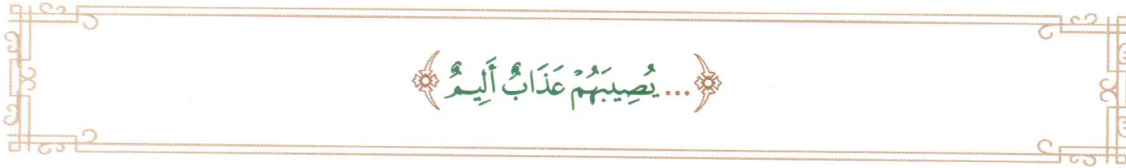 ﴿... يُصِيبَهُمْ عَذَابٌ أَلِيمٌ﴾